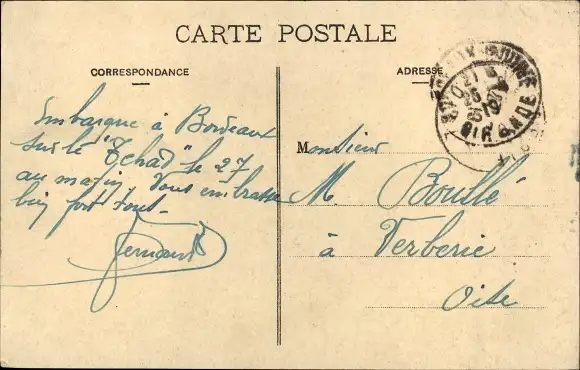 CARTE POSTALE
CORRESPONDANCE
ADRESSE
Embarque à Bordeaux
sur le "Tchad" le 27
au matin. Vous embrasse
bien fort tous -
Fernand
Monsieur
M. Boullé
à Verberie
Oise
GIRONDE